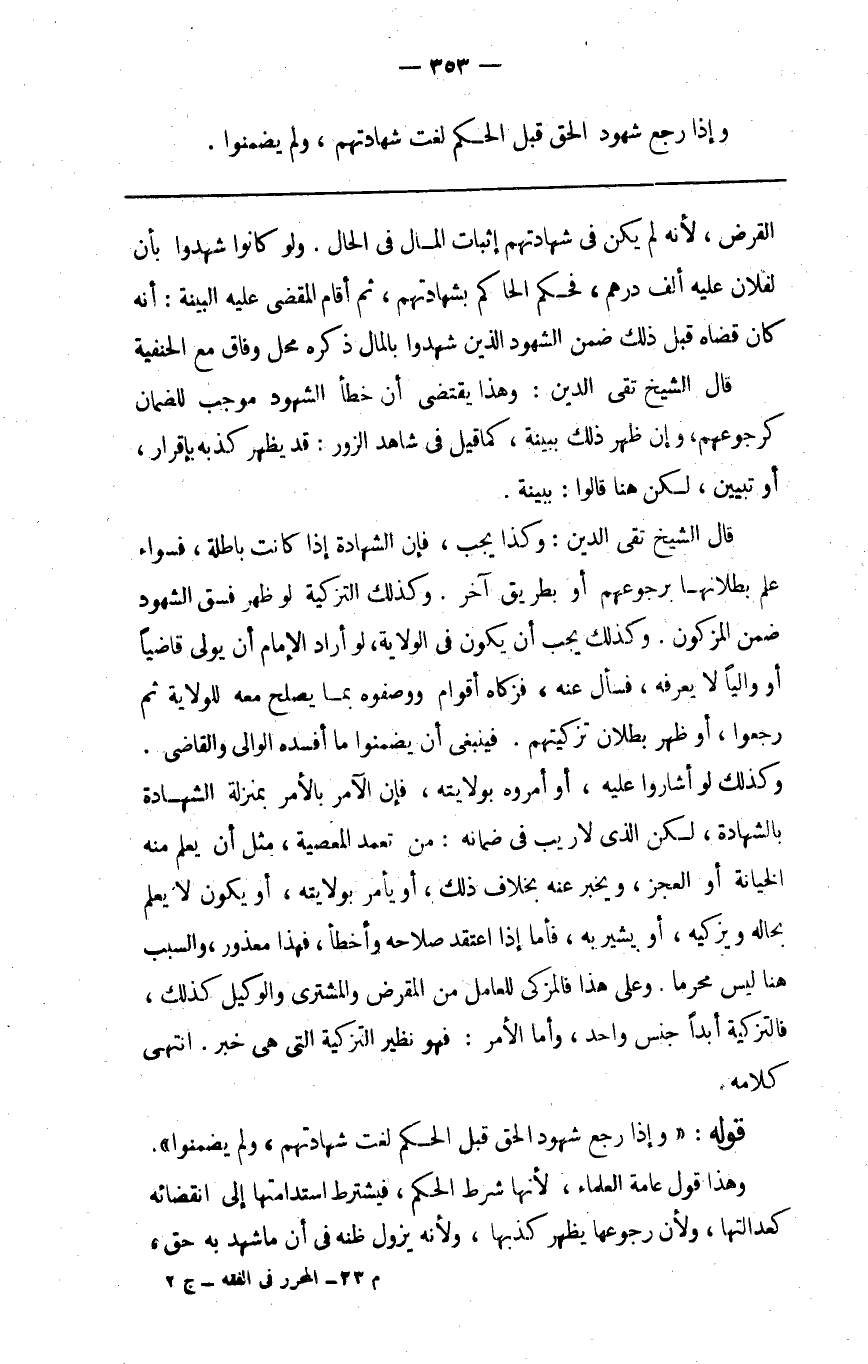 — ٣٥٣ —
وإذا رجع شهود الحق قبل الحكم لغت شهادتهم ، ولم يضمنوا .
القرض ، لأنه لم يكن فى شهادتهم إثبات المال فى الحال . ولو كانوا شهدوا بأن
لفلان عليه ألف درهم ، فحكم الحاكم بشهادتهم ، ثم أقام المقضى عليه البينة : أنه
كان قضاه قبل ذلك ضمن الشهود الذين شهدوا بالمال ذكره محل وفاق مع الحنفية
قال الشيخ تقى الدين : وهذا يقتضى أن خطأ الشهود موجب للضمان
كرجوعهم، وإن ظهر ذلك ببينة ، كماقيل فى شاهد الزور : قد يظهر كذبه بإقرار ،
أو تبيين ، لكن هنا قالوا : ببينة .
قال الشيخ تقى الدين : وكذا يجب ، فإن الشهادة إذا كانت باطلة ، فسواء
علم بطلانها برجوعهم أو بطريق آخر . وكذلك التزكية لو ظهر فسق الشهود
ضمن المزكون . وكذلك يجب أن يكون فى الولاية، لو أراد الإمام أن يولى قاضياً
أو والياً لا يعرفه ، فسأل عنه ، فزكاه أقوام ووصفوه بما يصلح معه للولاية ثم
رجعوا ، أو ظهر بطلان تزكيتهم . فينبغى أن يضمنوا ما أفسده الوالى والقاضى .
وكذلك لو أشاروا عليه ، أو أمروه بولايته ، فإن الآمر بالأمر بمنزلة الشهادة
بالشهادة ، لكن الذى لاريب فى ضمانه : من تعمد المعصية ، مثل أن يعلم منه
الخيانة أو العجز ، ويخبر عنه بخلاف ذلك ، أو يأمر بولايته ، أو يكون لا يعلم
بحاله ويزكيه ، أو يشير به ، فأما إذا اعتقد صلاحه وأخطأ ، فهذا معذور ،والسبب
هنا ليس محرما . وعلى هذا فالمزكى للعامل من المقرض والمشترى والوكيل كذلك ،
فالتزكية أبداً جنس واحد ، وأما الأمر : فهو نظير التزكية التى هى خبر . انتهى
كلامه .
قوله : « وإذا رجع شهود الحق قبل الحكم لغت شهادتهم ، ولم يضمنوا».
وهذا قول عامة العلماء ، لأنها شرط الحكم ، فيشترط استدامتها إلى انقضائه
كعدالتها ، ولأن رجوعها يظهر كذبها ، ولأنه يزول ظنه فى أن ماشهد به حق ،
م ٢٣ – المحرر فى الفقه – ج ٢